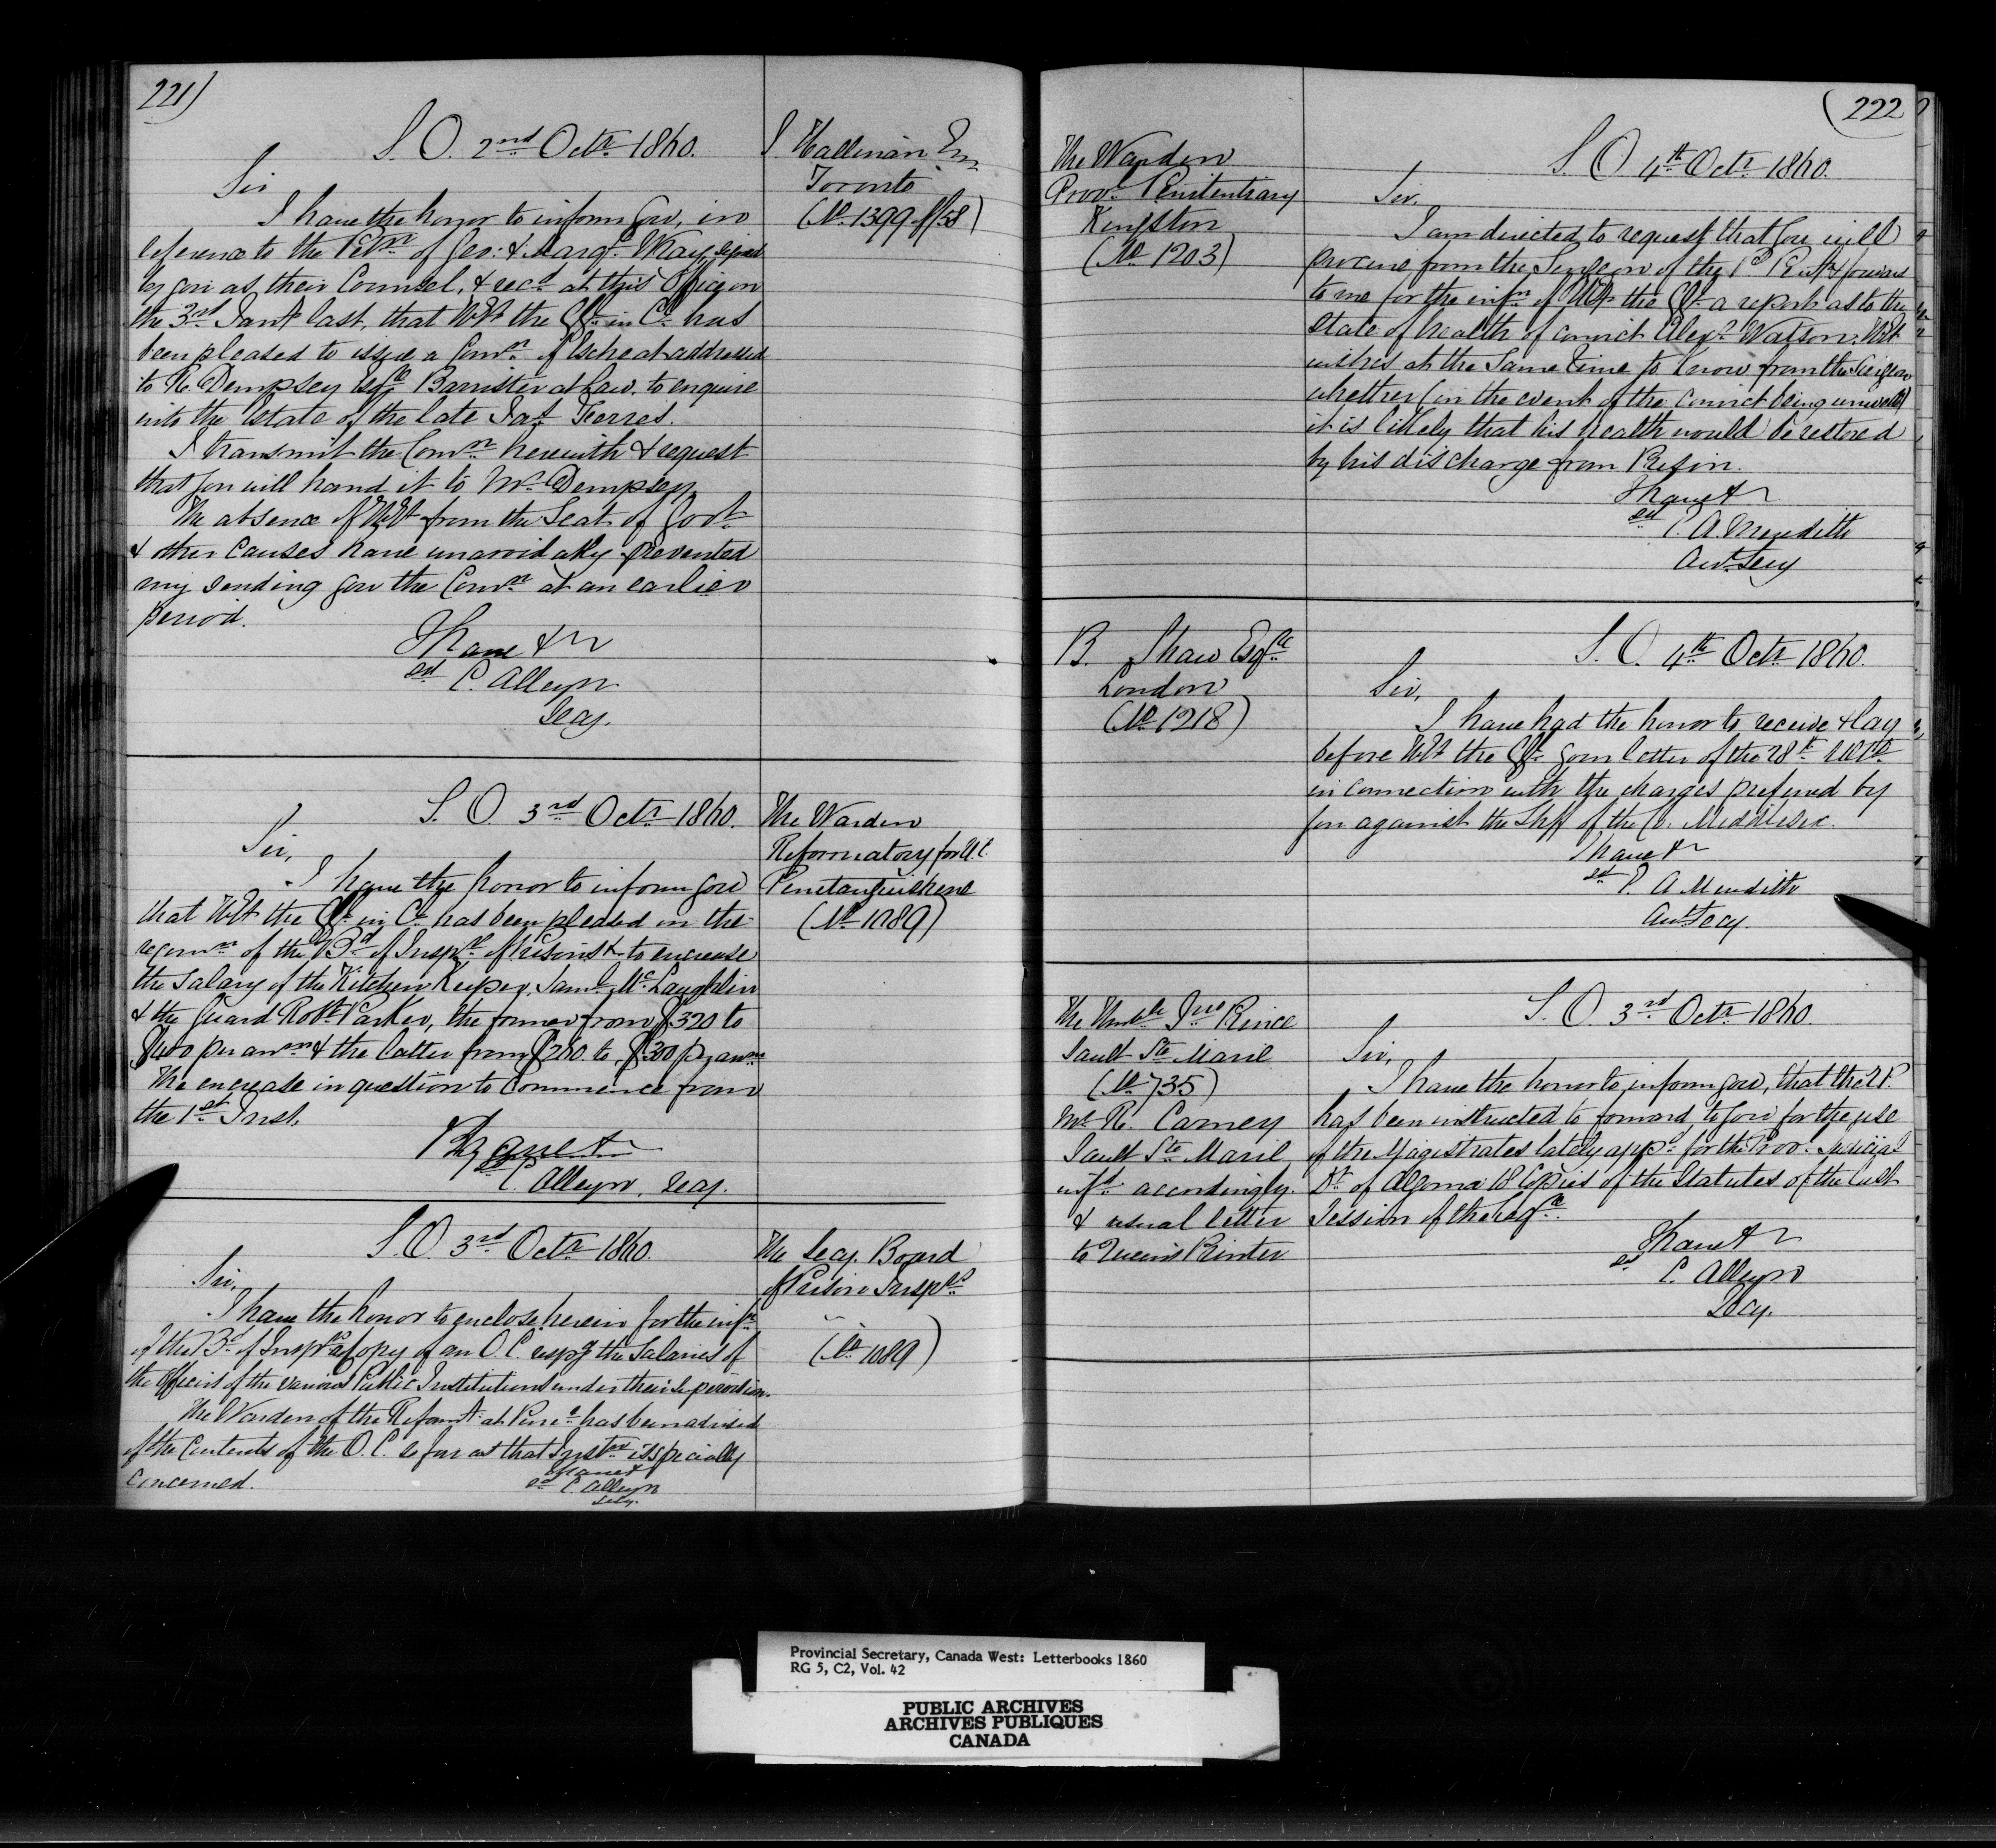 221)
S. O. 2nd Octr 1860.
Sir
I have the honor to inform you, in
reference to the Petn of Geo: & Margt Way, signed
by you as their Counsel, & recd at this Office on
the 3rd Jany last, that HEt the Gr in Cl has
been pleased to issue a Comn of Escheat addressed
to R. Dempsey Esqre Barrister at Law, to enquire
into the Estate of the late Jas
I transmit the Comn herewith & request
that you will hand it to Mr Dempsey.
The absence of HEt from the Seat of Govt
& other causes have unavoidably prevented
my sending you the Comn at an earlier
period.
I have &c
sd C. Alleyn
Secy.
J. Hallinan Esq
Toronto
(No 1399 of/58)
S. O. 3rd Octr 1860.
Sir,
I have the honor to inform you
that HEt the Gr in Cl has been pleased on the
recomn of the Bd of Insprs of Prisons &c to encrease
the Salary of the Kitchen Keeper, Saml McLaughlin
& the Guard Robt Parker, the former from $320 to
$400 per annm & the latter from $260 to $300 pr annm
The encrease in question to commence from
the 1st Inst.
I have &c
sd C. Alleyn, Secy.
The Warden
Reformatory for U.C.
Penetanguishene
(No 1089)
S. O. 3rd Octr 1860.
Sir,
I have the honor to enclose herein for the infn
of the Bd of Insprs a Copy of an O. C. respg the Salaries of
the Officers of the various Public Institutions under their supervision.
The Warden of the Reformy at Pene has been advised
of the Contents of the O. C. so far as that Instn is specially
concerned.
I have &
sd C. Alleyn
Secy.
The Secy. Board
of Prison Insprs
(No 1089)
222
The Warden
Provl Penitentiary
Kingston
(No 1203)
S. O. 4th Octr 1860.
Sir,
I am directed to request that you will
procure from the Surgeon of the Pl Penity & forward
to me for the infn of HEt the Gr a report as to the
state of health of convict Alexr Watson. HEt
wishes at the same time to know from the Surgeon
whether (in the event of the convict being unwell)
it is likely that his health would be restored
by his discharge from Prison.
I have &c
sd E. A. Meredith
Asst Secy
B. Shaw Esqre
London
(No 1218)
S. O. 4th Octr 1860.
Sir,
I have had the honor to receive & lay
before HEt the Gr your letter of the 28th ulto
in connection with the charges preferred by
you against the Shff of the Co. Middlesex.
I have &c
sd E. A Meredith
Asst Secy.
The Honble Jno Prince
Sault Ste Marie
(No 735)
Mr R. Carney
Sault Ste Marie
infd accordingly.
& usual letter
to Queen's Printer
S. O. 3rd Octr 1860.
Sir,
I have the honor to inform you, that the Q. P.
has been instructed to forward to you for the use
of the Magistrates lately appd for the Prov. Judicial
Dt of Algoma 18 Copies of the Statutes of the last
Session of the Legre
I have &c
sd C. Alleyn
Secy.
Provincial Secretary, Canada West: Letterbooks 1860
RG 5, C2, Vol. 42
PUBLIC ARCHIVES
ARCHIVES PUBLIQUES
CANADA